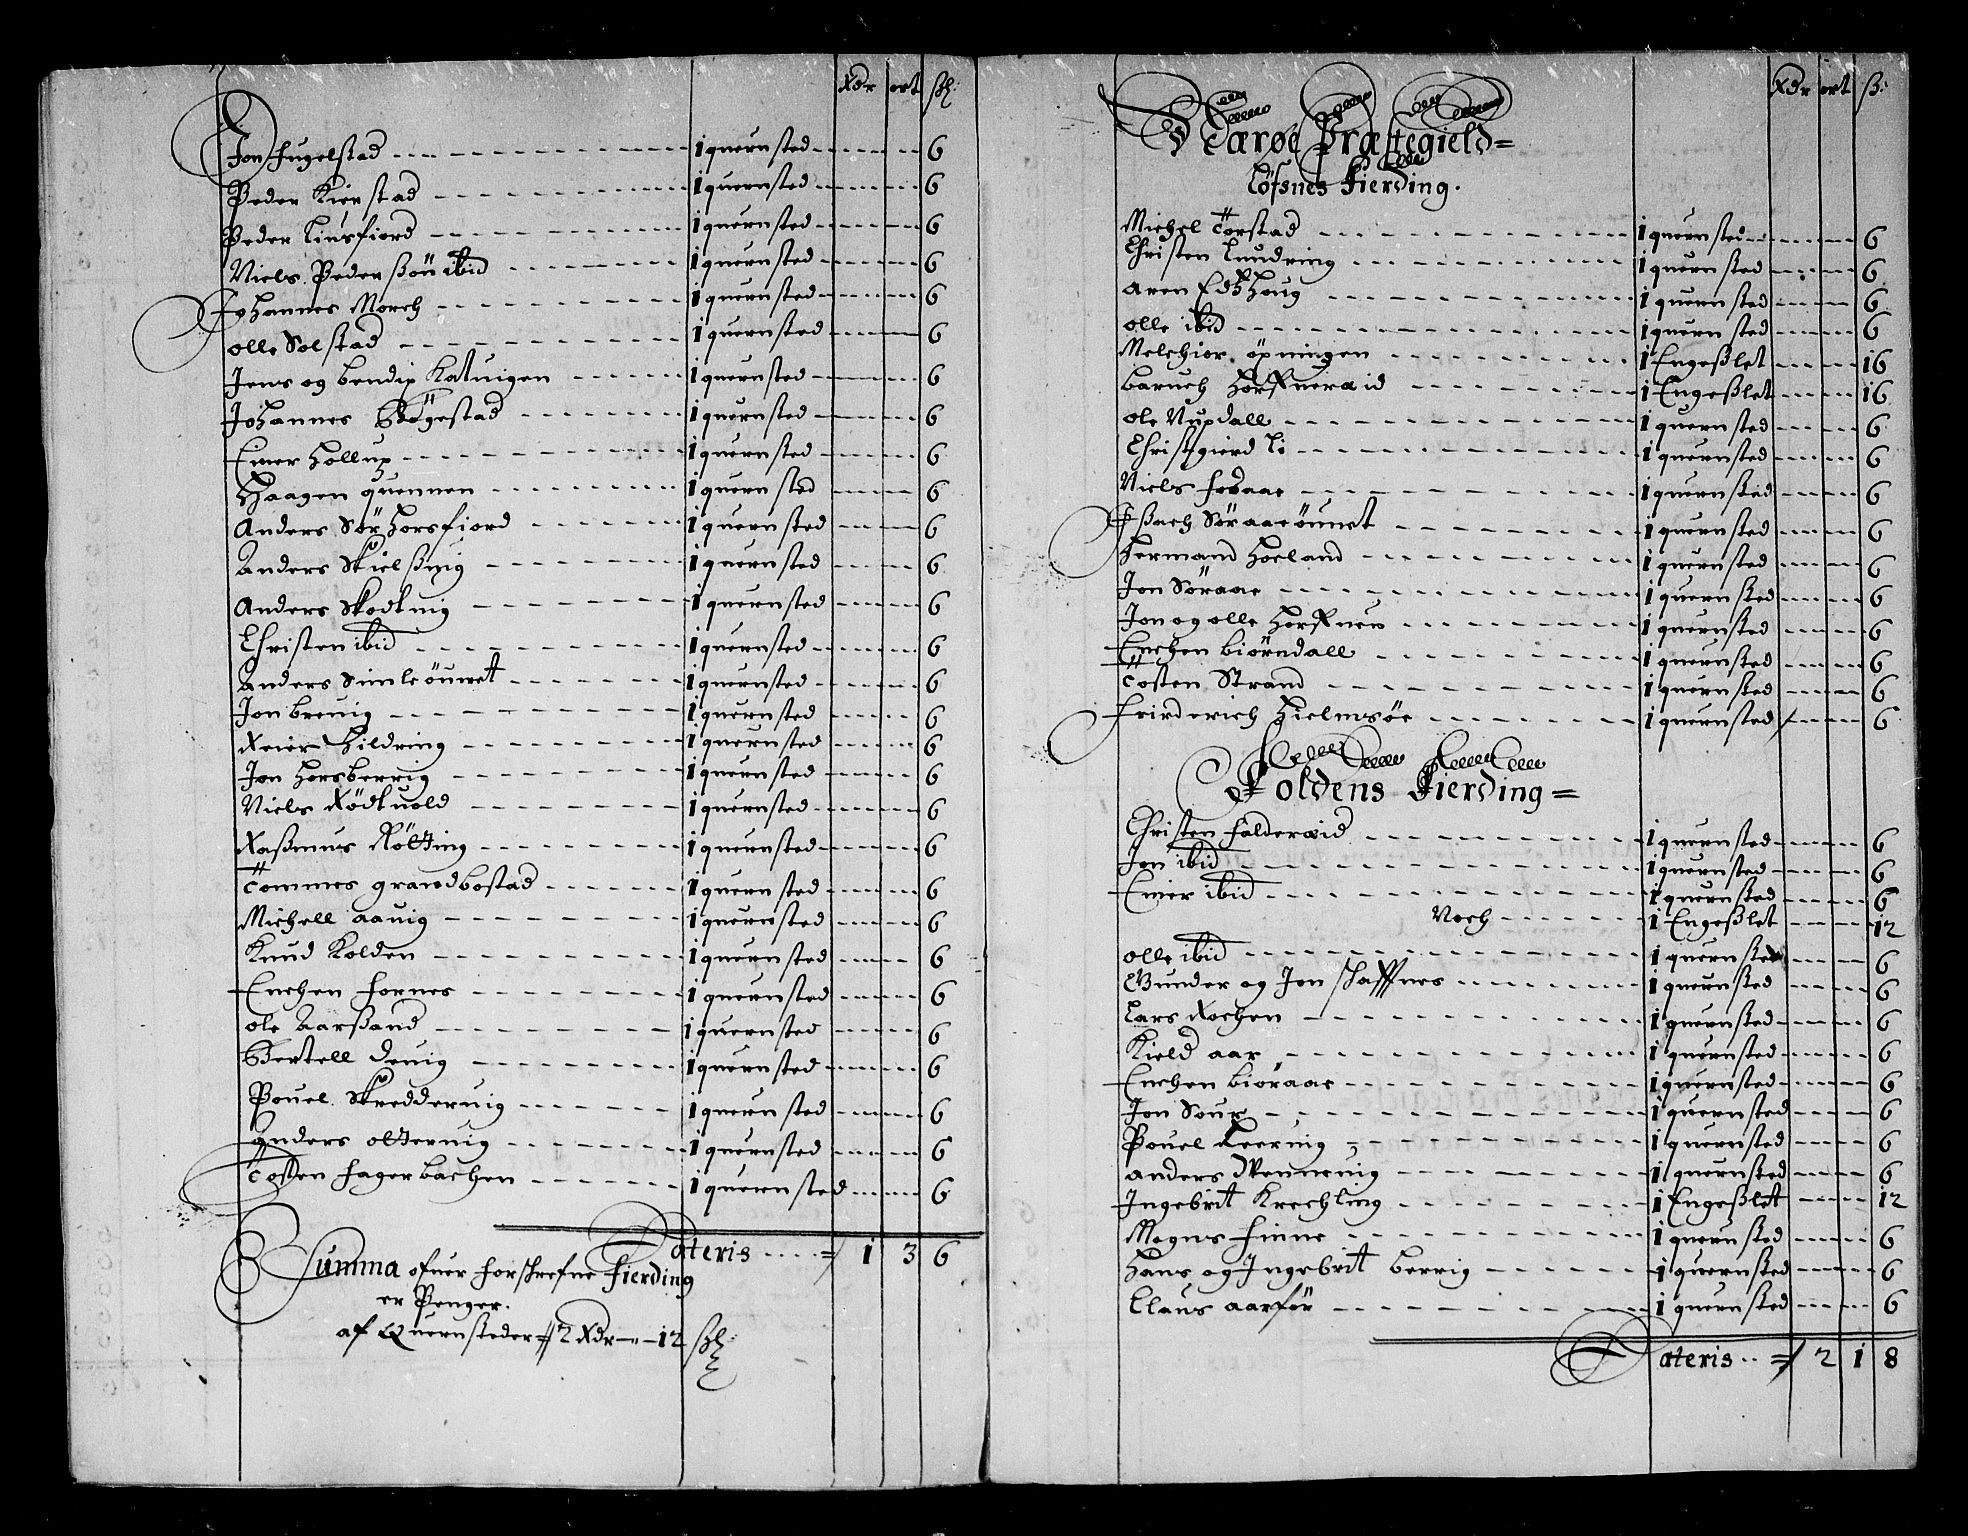 Rdr ort ßl:
Jon Fugelstad 1 quernsted 6
Peder Kierstad 1 quernsted 6
Peder Liusfiord 1 quernsted 6
Niels Pederßøn ibid 1 quernsted 6
Johannes Morch 1 quernsted 6
olle Solstad 1 quernsted 6
Jens og bendix Katuigen 1 quernsted 6
Johannes Bögestad 1 quernsted 6
Einer Hollup 1 quernsted 6
Haagen quennen 1 quernsted 6
Anders Sör Horsfiord 1 quernsted 6
Anders Skielßuig 1 quernsted 6
Anders Skodtuig 1 quernsted 6
Christen ibid 1 quernsted 6
Anders Simleöuret 1 quernsted 6
Jon breuig 1 quernsted 6
Reier Hildring 1 quernsted 6
Jon Horsberrig 1 quernsted 6
Niels Rödtuold 1 quernsted 6
Raßmus Röltting 1 quernsted 6
Tommes grandbostad 1 quernsted 6
Michell aauig 1 quernsted 6
Knud Kolden 1 quernsted 6
Erichen fornes 1 quernsted 6
ole Aarßand 1 quernsted 6
Bertell Deuig 1 quernsted 6
Pouel Skredderuig 1 quernsted 6
Anders olteruig 1 quernsted 6
Tosten fagerbachen 1 quernsted 6
Lateris = 1 3 6
Summa ofuer forskrefne fierding
er Penger.
af Quernsteder 2 Rdr - 12 ßl:
Rdr ort ß:
Nærøe Præstegield =
Löfsnes Fierding.
Michel Törstad 1 quernsted 6
Christen Lundring 1 quernsted 6
Aren Edtzhoug 1 quernsted 6
olle ibid 1 quernsted 6
Melchior öpningen 1 Engeßlet 16
baruch horffneraid 1 Engeßlet 16
ole Nupdall 1 quernsted 6
Christgierd Li 1 quernsted 6
Niels fodaae 1 quernsted 6
Jßach Söraaeöuret 1 quernsted 6
Hermand hoeland 1 quernsted 6
Jon Söraae 1 quernsted 6
Jon og olle horffnes 1 quernsted 6
Erichen biörndall 1 quernsted 6
Tosten Strand 1 quernsted 6
frirderich hielmsöe 1 quernsted 6
Foldens Fierding =
Christen falderaid 1 quernsted 6
Jon ibid 1 quernsted 6
Einer ibid 1 quernsted 6
Noch 1 Engeßlet 12
olle ibid 1 quernsted 6
Gunder og Jon skaffnes 1 quernsted 6
Lars Rochen 1 quernsted 6
Kield aar 1 quernsted 6
Erichen bioraae 1 quernsted 6
Jon Sour 1 quernsted 6
Pouel Keeruig 1 quernsted 6
anders Wennruig 1 quernsted 6
Ingebrit Krechling 1 Engeßlet 12
Mogns finne 1 quernsted 6
Hans og Ingebrit berrig 1 quernsted 6
Claus aarför 1 quernsted 6
Lateris = 2 1 8